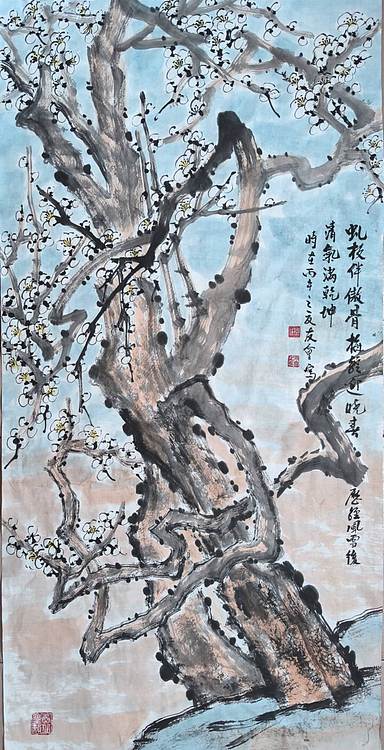 虬枝伴傲骨 梅迎晓春 歷經風雪後
清氣滿乾坤
時在丙午之夏友寫